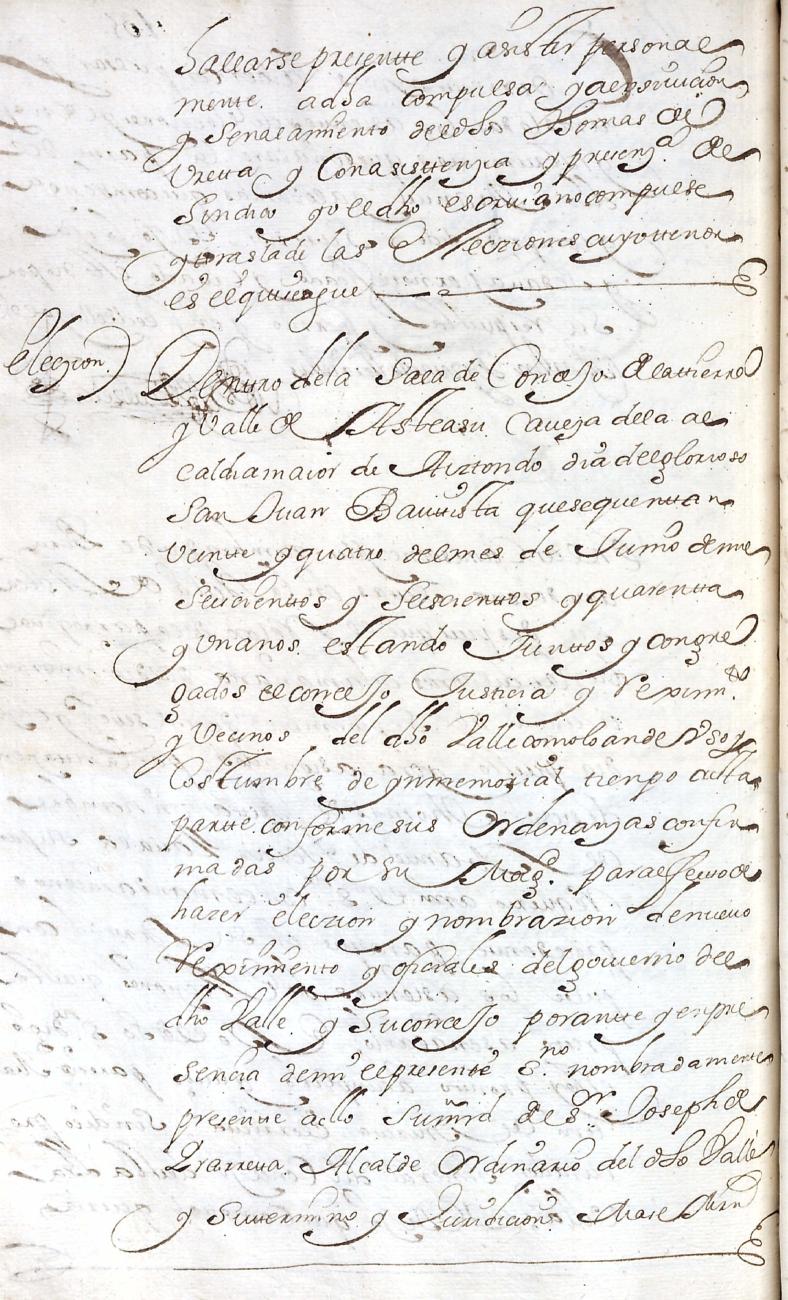 hallarse presentte y asistir personal
mente. a dha compulsa y a exsivicion
y Señalamiento del dho Thomas de
Vretta y Con asisttenzia y presenz.ª de
Sindico yo el dho escriuano compulse
y traslade las Elecziones cuyo ttenor
es el que se sigue
Elezion.)
Dentro de la Sala de Conzejo de la tierra
y Valle de Asteasu Caueza de la al
caldia maior de Aiztondo dia del glorioso
San Juan Bauttista que se quenttan
Veinte y quatro del mes de Junio de mil
Seiscienttos y Seiscienttos y quarentta
y Un anos. estando Junttos y congre
gados el concejo Justicia y Reximi.to
y Vecinos del dho Valle como lo an de Vso y
Costumbre de ynmemorial tienpo a esta
partte. conforme sus Ordenanzas confir
madas por Su Mag.d para efecto de
hazer elezion y nombrazion de nueuo
Reximiento y oficiales del gouierno del
dho Valle. y Su concejo por antte y en pre
sencia de mi el presente S.no nombradamente
presente a ello Su mrd de S.r Joseph de
Yrarreta Alcalde Ordinario del dho Valle
y Su ttermino y Juridicion.